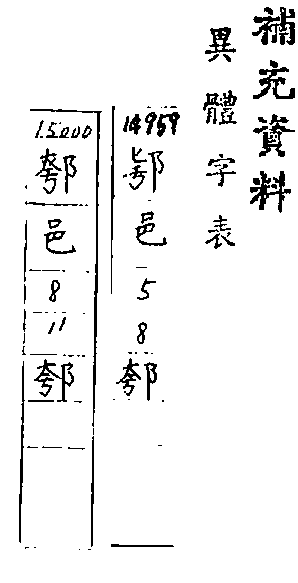 補充資料
異體字表
14959
邑
5
8
15000
邑
8
11